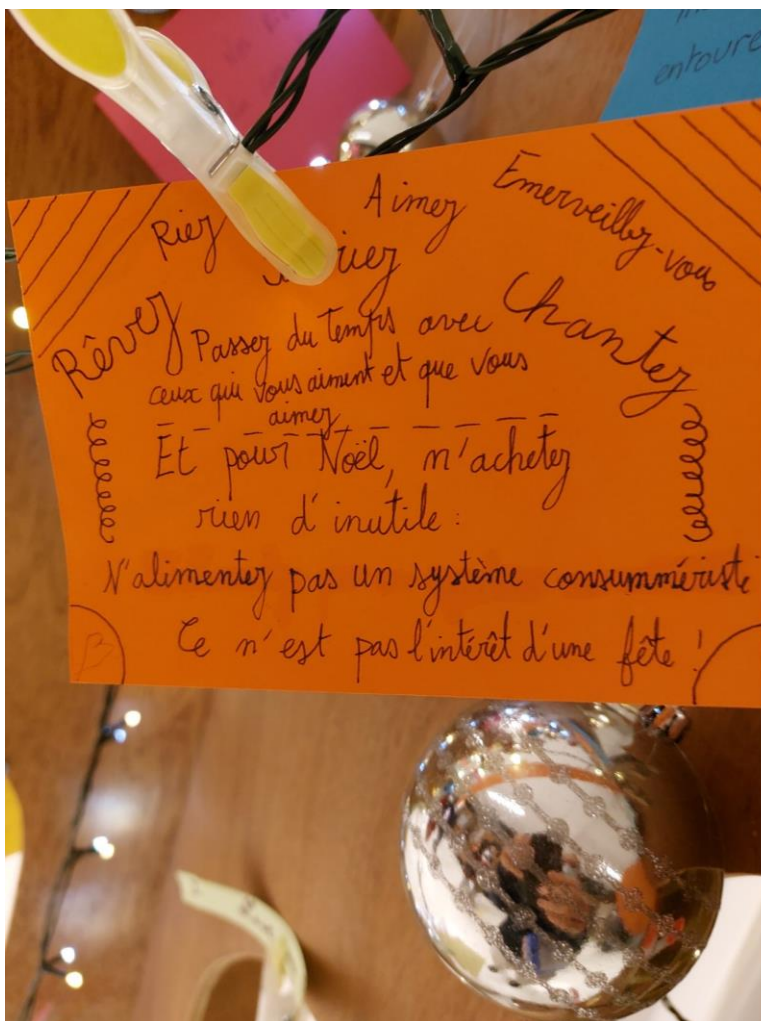 entoure
Riez
Aimez
Émerveillez-vous
Rêvez
Chantez
Passez du temps avec
ceux qui vous aiment et que vous
aimez
Et pour Noël, n'achetez
rien d'inutile :
N'alimentez pas un système consummériste
Ce n'est pas l'intérêt d'une fête !